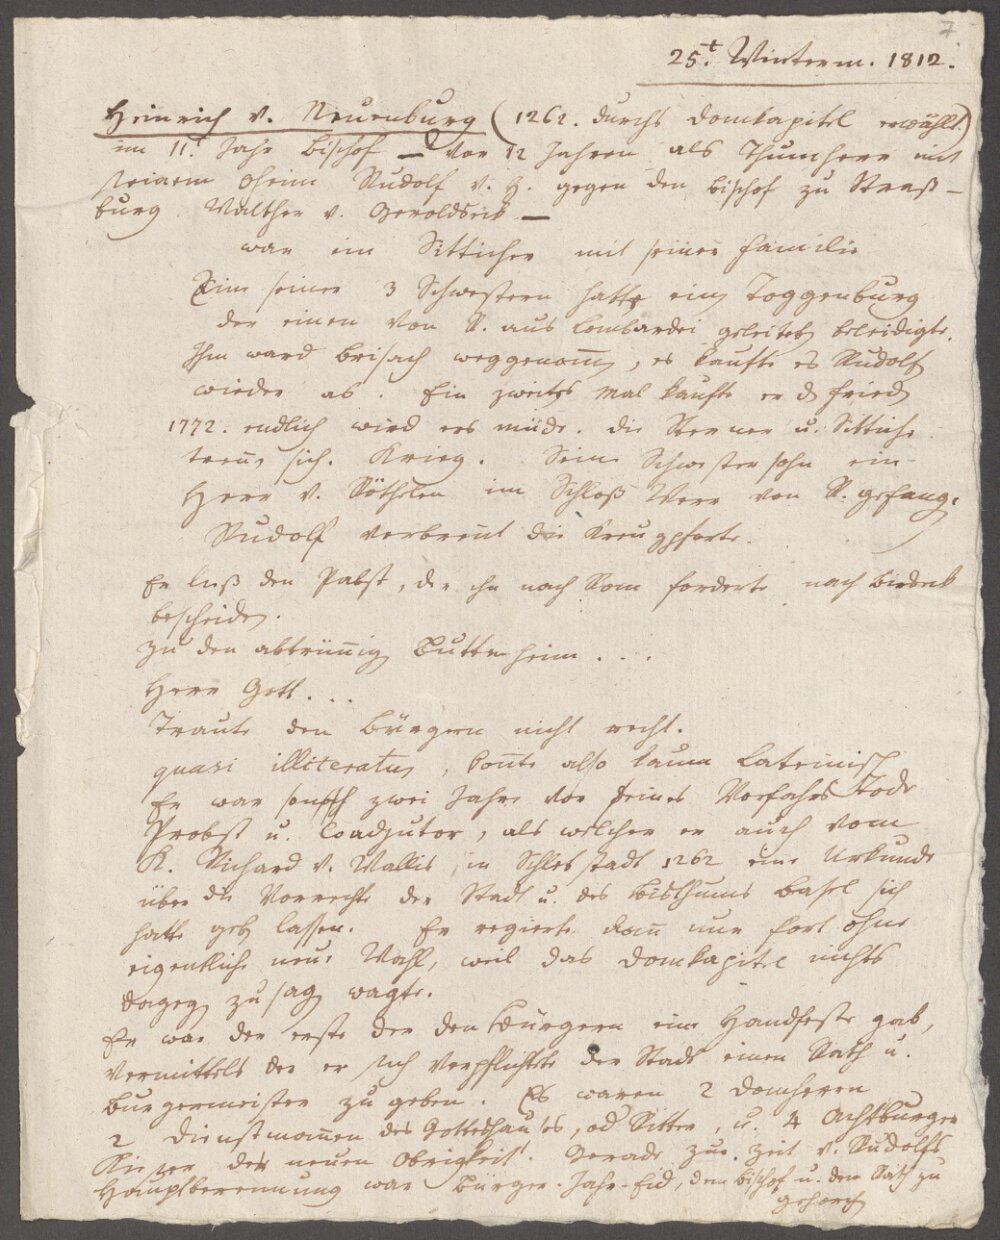 7
25.t Winterm. 1812.
Heinrich v. Neuenburg (1262. durchs Domkapitel erwählt.)
im 11t Jahr Bischof — vor 12 Jahren als Thumherr mit
seinem Oheim Rudolf v. H. gegen den Bischof zu Straß-
burg Walther v. Geroldseck —
war ein Sitticher mit seiner Familie
Eine seiner 3 Schwestern hatte ein Toggenburg
der einen von R. aus Lombardei geleiteten beleidigte.
Ihm ward Brisach weggenomm, er kaufte es Rudolf
wieder ab. Ein zweites Mal kaufte er d Fried
1772. endlich wird ers müde. Die Sterner u. Sittiche
trenn. sich. Krieg. Seine Schwestersohn ein
Herr v. Röthelen im Schloß Werr von R. gefang.
Rudolf verbrennt die Kreuzpforte.
Er ließ den Pabst, der ihn nach Rom forderte nach Birseck
bescheiden.
Zu den abtrünnig Buttenheim . . .
Herr Gott . . .
Traute den Bürgern nicht recht.
quasi illiteratus, konnte also kaum Lateinisch
Er war schon zwei Jahre vor seines Vorfahrs Tode
Probst u. Coadjutor, als welcher er auch vom
K. Richard v. Wallis in Schletstadt 1262 eine Urkunde
über die Vorrechte der Stadt u. des Bisthums Basel sich
hatte geb lassen. Er regierte dann nur fort ohne
eigentliche neue Wahl, weil das Domkapitel nichts
dageg zu sag wagte.
Er war der erste der den Bürgern eine Handfeste gab,
vermittels der er sich verpflichtete der Stadt einen Rath u.
Burgermeister zu geben. Es waren 2 Domherren
2 Dienstmannen des Gotteshauses, od Ritter, u. 4 Achtburger
Kieser der neuen Obrigkeit. Gerade zur Zeit v. Rudolfs
Hauptberennung war Bürger-Jahr-Eid, dem Bischof u. dem Rath zu
gehorch